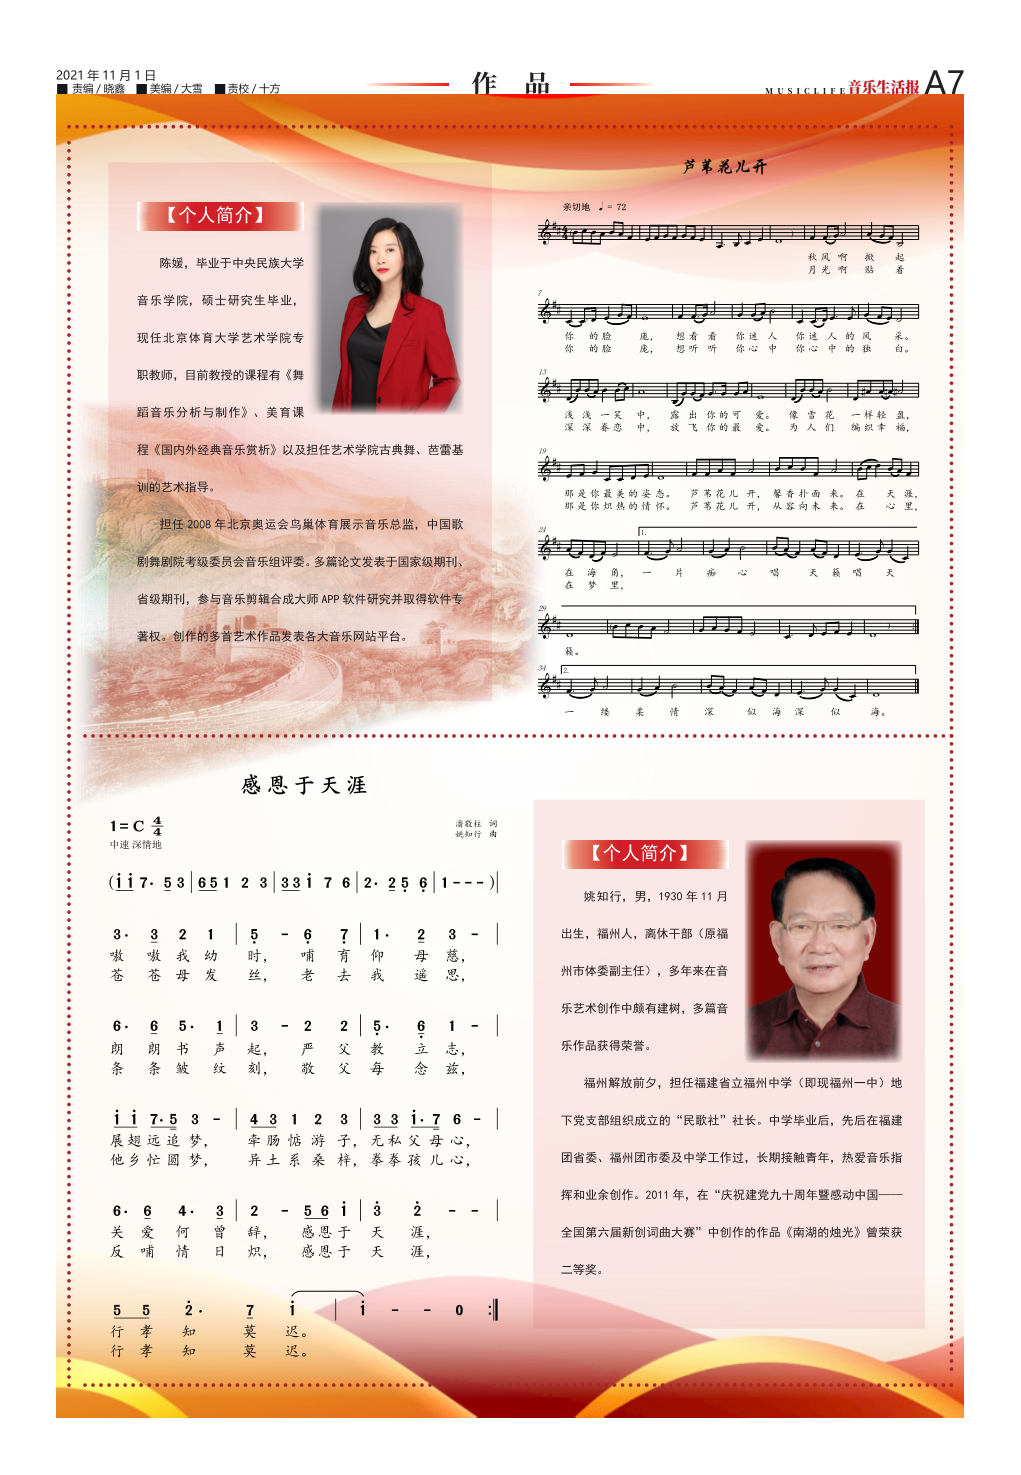 2021 年 11 月 1 日
■ 责编 / 晓鑫 ■ 美编 / 大雪 ■ 责校 / 十方
作 品
MUSICLIFE 音乐生活报 A7
【个人简介】
陈媛，毕业于中央民族大学
音乐学院，硕士研究生毕业，
现任北京体育大学艺术学院专
职教师，目前教授的课程有《舞
蹈音乐分析与制作》、美育课
程《国内外经典音乐赏析》以及担任艺术学院古典舞、芭蕾基
训的艺术指导。
担任 2008 年北京奥运会鸟巢体育展示音乐总监，中国歌
剧舞剧院考级委员会音乐组评委。多篇论文发表于国家级期刊、
省级期刊，参与音乐剪辑合成大师 APP 软件研究并取得软件专
著权。创作的多首艺术作品发表各大音乐网站平台。
芦苇花儿开
亲切地 ♩= 72
秋 风 啊 掀 起
月 光 啊 贴 着
7
你 的 脸 庞， 想 看 着 你 迷 人 你 迷 人 的 风 采。
你 的 脸 庞， 想 听 听 你 心 中 你 心 中 的 独 白。
13
浅 浅 一 笑 中， 露 出 你 的 可 爱。 像 雪 花 一 样 轻 盈，
深 深 眷 恋 中， 放 飞 你 的 最 爱。 为 人 们 编 织 幸 福，
19
那 是 你 最 美 的 姿 态。 芦 苇 花 儿 开， 馨 香 扑 面 来。 在 天 涯，
那 是 你 炽 热 的 情 怀。 芦 苇 花 儿 开， 从 容 向 未 来。 在 心 里，
24
1.
在 海 角， 一 片 痴 心 唱 天 籁 唱 天
在 梦 里，
29
籁。
34
2.
一 缕 柔 情 深 似 海 深 似 海。
感恩于天涯
1=C 4/4
中速 深情地
潘敬柱 词
姚知行 曲
(i i 7· 5 3 | 6 5 1 2 3 | 3 3 i 7 6 | 2· 2 5 6 | 1 - - - )|
3· 3 2 1 | 5 - 6 7 | 1· 2 3 - |
嗷 嗷 我 幼 时， 哺 育 仰 母 慈，
苍 苍 母 发 丝， 老 去 我 遥 思，
6· 6 5· 1 | 3 - 2 2 | 5· 6 1 - |
朗 朗 书 声 起， 严 父 教 立 志，
条 条 皱 纹 刻， 敬 父 每 念 兹，
i i 7· 5 3 - | 4 3 1 2 3 | 3 3 i· 7 6 - |
展 翅 远 追 梦， 牵 肠 惦 游 子，无 私 父 母 心，
他 乡 忙 圆 梦， 异 土 系 桑 梓，拳 拳 孩 儿 心，
6· 6 4· 3 | 2 - 5 6 i | 3 2 - - |
关 爱 何 曾 辞， 感 恩 于 天 涯，
反 哺 情 日 炽， 感 恩 于 天 涯，
5 5 2· 7 i | i - - 0 :‖
行 孝 知 莫 迟。
行 孝 知 莫 迟。
【个人简介】
姚知行，男，1930 年 11 月
出生，福州人，离休干部（原福
州市体委副主任），多年来在音
乐艺术创作中颇有建树，多篇音
乐作品获得荣誉。
福州解放前夕，担任福建省立福州中学（即现福州一中）地
下党支部组织成立的“民歌社”社长。中学毕业后，先后在福建
团省委、福州团市委及中学工作过，长期接触青年，热爱音乐指
挥和业余创作。2011 年，在“庆祝建党九十周年暨感动中国——
全国第六届新创词曲大赛”中创作的作品《南湖的烛光》曾荣获
二等奖。